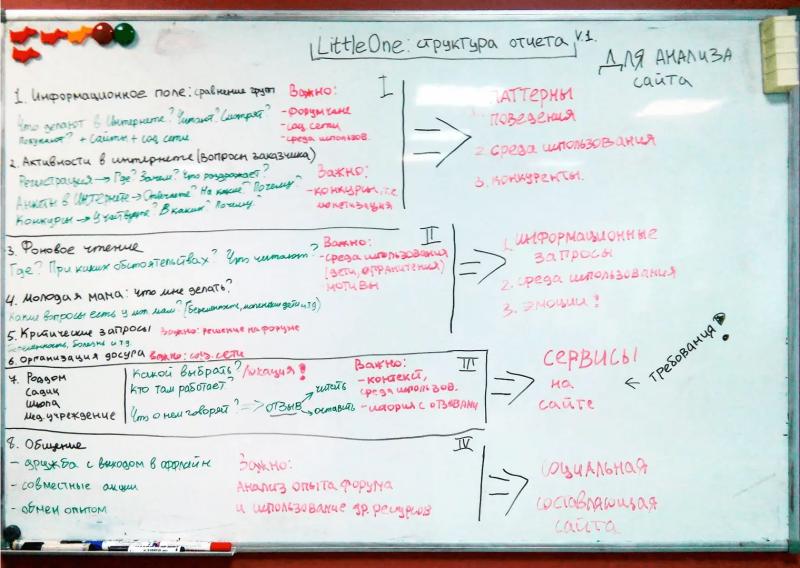 LittleOne: структура отчета V.1.
ДЛЯ АНАЛИЗА
сайта
I
1. Информационное поле: сравнение групп
Что делают в Интернете? Читают? Смотрят?
Покупают? + сайты + соц. сети
Важно:
- форумчане
- соц. сети
- среда использов.
2. Активности в интернете (вопросы заказчика)
Регистрация → Где? Зачем? Что раздражает?
Анкеты в Интернете → Отвечаете? На какие? Почему?
Конкурсы → Участвуете? В каких? Почему?
Важно:
- конкурсы, т.е.
монетизация
1. ПАТТЕРНЫ
поведения
2. среда использования
3. конкуренты.
II
3. Фоновое чтение
Где? При каких обстоятельствах? Что читают?
Важно:
- среда использования
(дети, ограничения)
- мотивы
4. Молодая мама: что мне делать?
Какие вопросы есть у мол. мам? (беременность, маленькие дети и т.д)
5. Критические запросы Важно: решение на форуме
беременность, болезни и т.д.
6. Организация досуга Важно: соц. сети
1. информационные
запросы
2. среда использования
3. эмоции!
III
7. Роддом
Садик
Школа
Мед. учреждение
Какой выбрать? /локация!
Кто там работает?
Что о нем говорят? => отзыв
читать
оставить
Важно:
- контекст,
среда использов.
- история с отзывами
СЕРВИСЫ
на
сайте
← требования?!
IV
8. Общение
- дружба с выходом в оффлайн
- совместные акции
- обмен опытом
Важно:
Анализ опыта форума
и использование др. ресурсов
СОЦИАЛЬНАЯ
составляющая
сайта